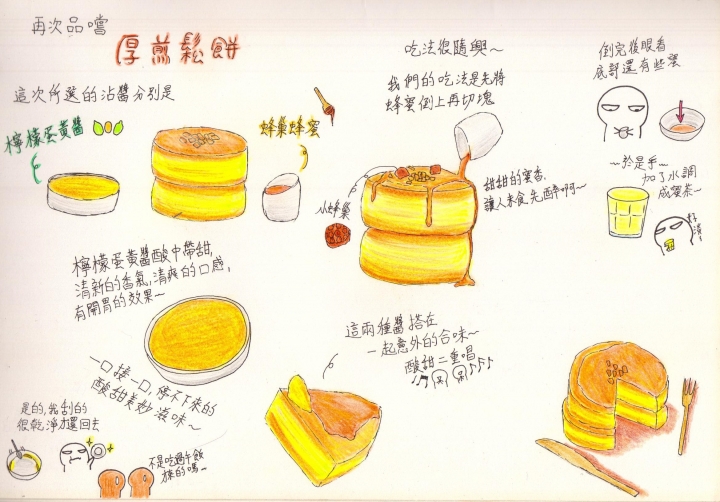 再次品嚐
厚煎鬆餅
這次所選的沾醬分別是
檸檬蛋黃醬
蜂巢蜂蜜
吃法很隨興~
我們的吃法是先將
蜂蜜倒上再切塊
小蜂巢
甜甜的蜜香,
讓人未食先醉啊~
倒完後眼看
底部還有些蜜
~於是乎~
加了水調
成蜜茶~
好渴
檸檬蛋黃醬酸中帶甜,
清新的香氣,清爽的口感,
有開胃的效果~
一口接一口,停不下來的
酸甜美妙滋味~
這兩種醬搭在
一起意外的合味~
酸甜二重唱
是的,我刮的
很乾淨才還回去
不是吃過午飯
來的嗎~